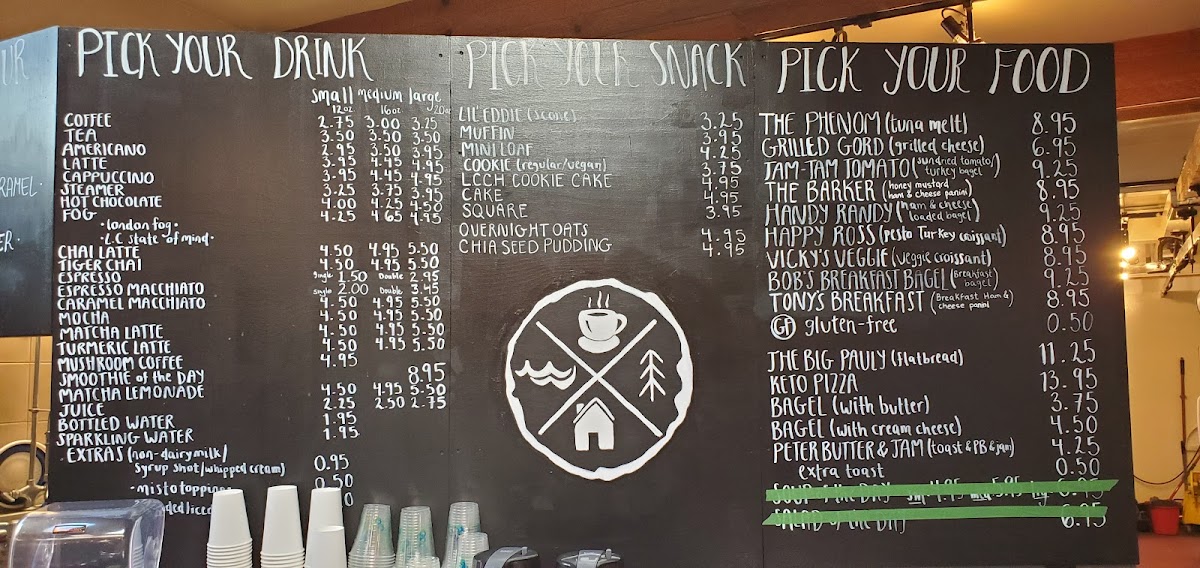 UR
RAMEL·
ER·
PICK YOUR DRINK
small medium large
12oz 16oz 20oz
COFFEE 2.75 3.00 3.25
TEA 3.50 3.50 3.50
AMERICANO 2.95 3.50 3.95
LATTE 3.95 4.45 4.95
CAPPUCCINO 3.95 4.45 4.95
STEAMER 3.25 3.75 3.95
HOT CHOCOLATE 4.00 4.25 4.50
FOG 4.25 4.65 4.95
·london fog·
·L.C state of mind·
CHAI LATTE 4.50 4.95 5.50
TIGER CHAI 4.50 4.95 5.50
ESPRESSO single 2.50 Double 2.95
ESPRESSO MACCHIATO single 2.00 Double 3.45
CARAMEL MACCHIATO 4.50 4.95 5.50
MOCHA 4.50 4.95 5.50
MATCHA LATTE 4.50 4.95 5.50
TURMERIC LATTE 4.50 4.95 5.50
MUSHROOM COFFEE 4.95
SMOOTHIE of the DAY 8.95
MATCHA LEMONADE 4.50 4.95 5.50
JUICE 2.25 2.50 2.75
BOTTLED WATER 1.95
SPARKLING WATER 1.95
EXTRAS (non-dairy milk/
syrup shot/whipped cream) 0.95
·misto topping 0.50
PICK YOUR SNACK
LIL' EDDIE (scone) 3.25
MUFFIN 3.95
MINI LOAF 4.25
COOKIE (regular/vegan) 3.75
LCCH COOKIE CAKE 4.95
CAKE 4.95
SQUARE 3.95
OVERNIGHT OATS 4.95
CHIA SEED PUDDING 4.95
PICK YOUR FOOD
THE PHENOM (tuna melt) 8.95
GRILLED GORD (grilled cheese) 6.95
JAM-TAM TOMATO (sundried tomato/ turkey bagel) 9.25
THE BARKER (honey mustard ham & cheese panini) 8.95
HANDY RANDY (ham & cheese loaded bagel) 9.25
HAPPY ROSS (pesto Turkey croissant) 8.95
VICKY'S VEGGIE (veggie croissant) 8.95
BOB'S BREAKFAST BAGEL (breakfast bagel) 9.25
TONY'S BREAKFAST (Breakfast Ham & cheese panini) 8.95
GF gluten-free 0.50
THE BIG PAULY (flatbread) 11.25
KETO PIZZA 13.95
BAGEL (with butter) 3.75
BAGEL (with cream cheese) 4.50
PETER BUTTER & JAM (toast & PB & jam) 4.25
extra toast 0.50
SOUP of the DAY sm 4.95 med 5.95 lg 6.95
SALAD of the DAY 6.95